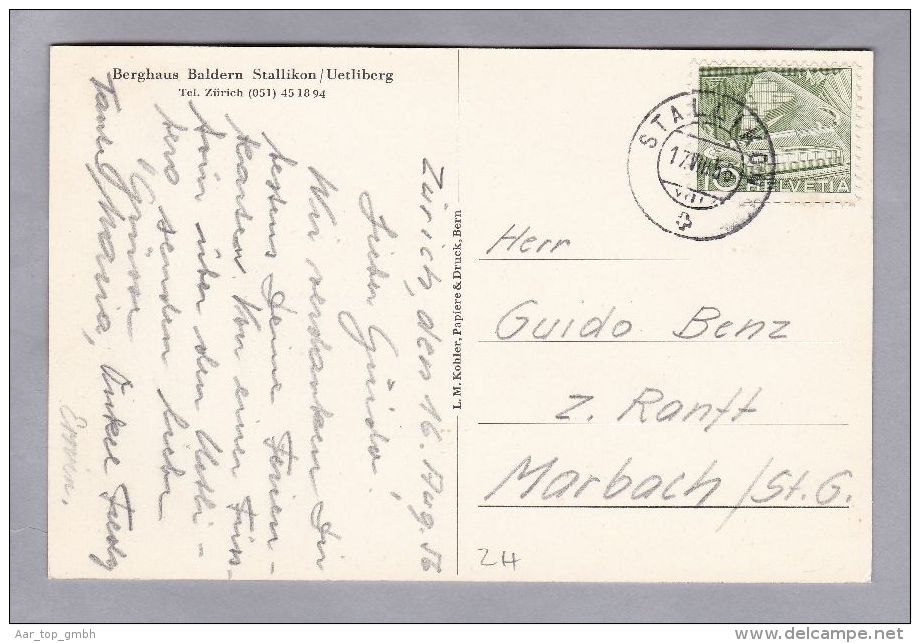 Berghaus Baldern Stallikon/Uetliberg
Tel. Zürich (051) 45 18 94
Zürich, den 16. Aug. 56
Lieber Guido!
Wir verdanken Dir
bestens Deine Ferien-
karten. Von einer
tour über den Uetli-
berg senden liebe
Grüsse
Tante Maria, Onkel
Erwin.
L. M. Kohler, Papiere & Druck, Bern
STALLIKON
17.VIII.56
10 HELVETIA
Herr
Guido Benz
z. Ranft
Marbach/St. G.
ZH
Aar_top_gmbh
delcampe.net